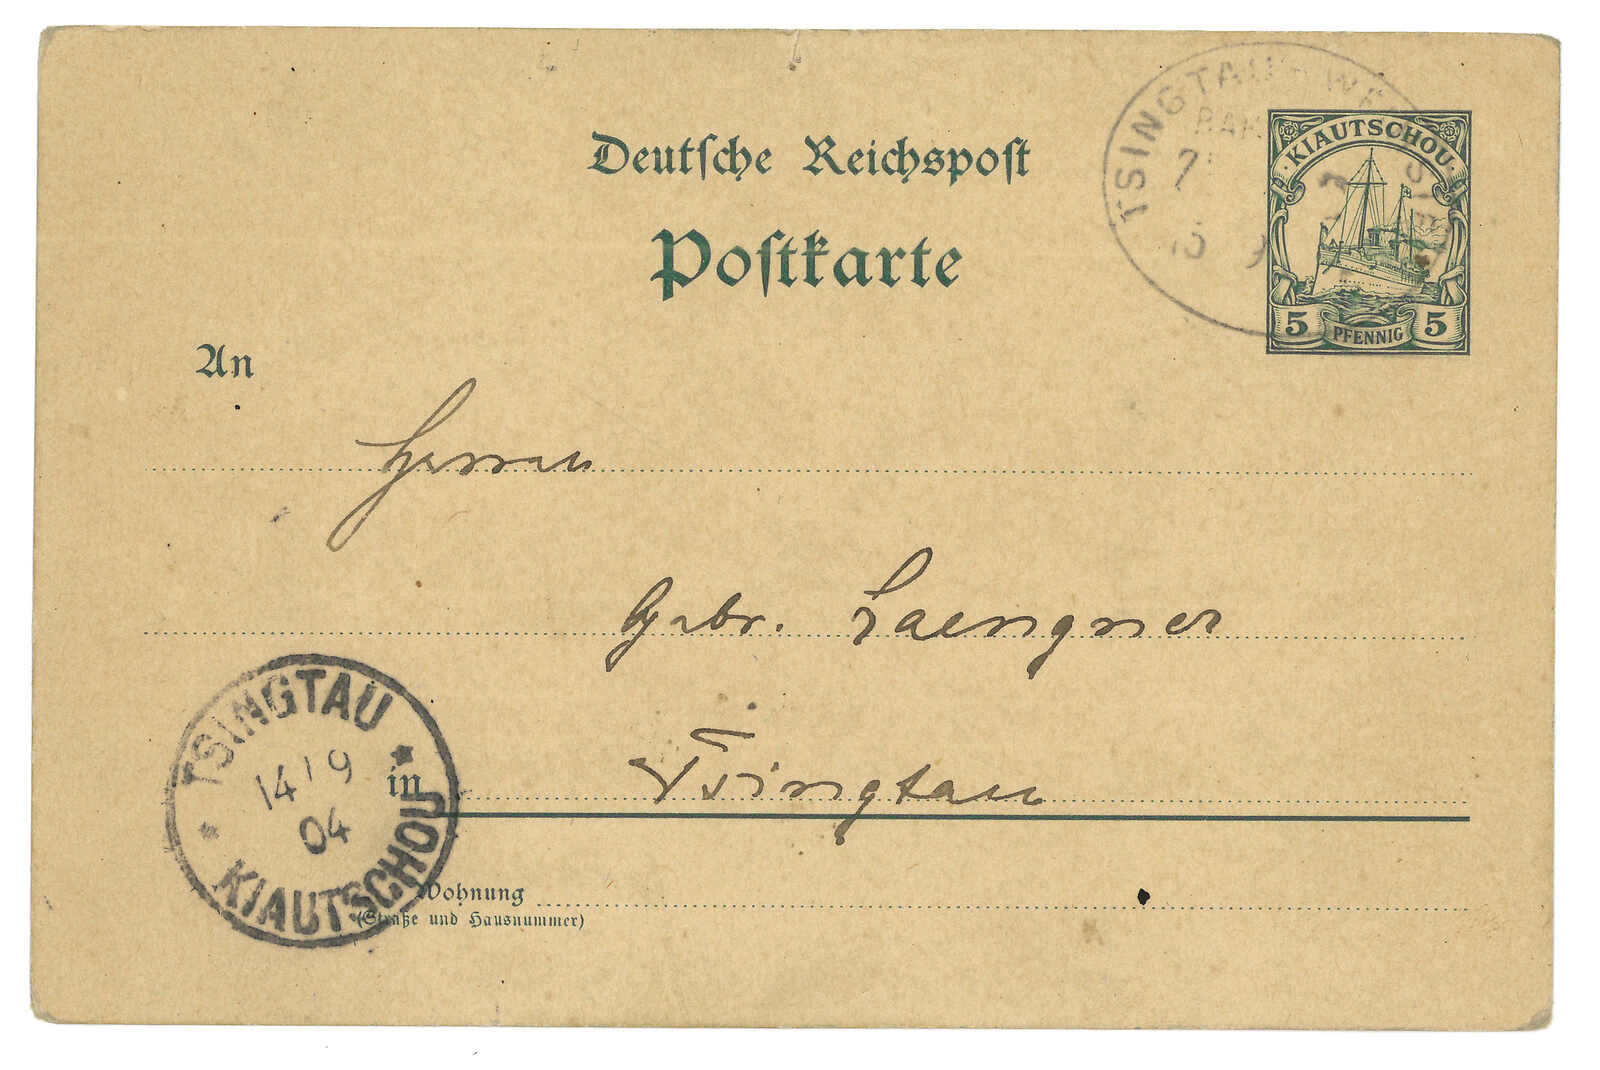 Deutsche Reichspost
Postkarte
TSINGTAU
KIAUTSCHOU
5 PFENNIG 5
An
Herren
Gebr. Laengner
in Tsingtau
TSINGTAU
14 9
04
KIAUTSCHOU
Wohnung
(Straße und Hausnummer)